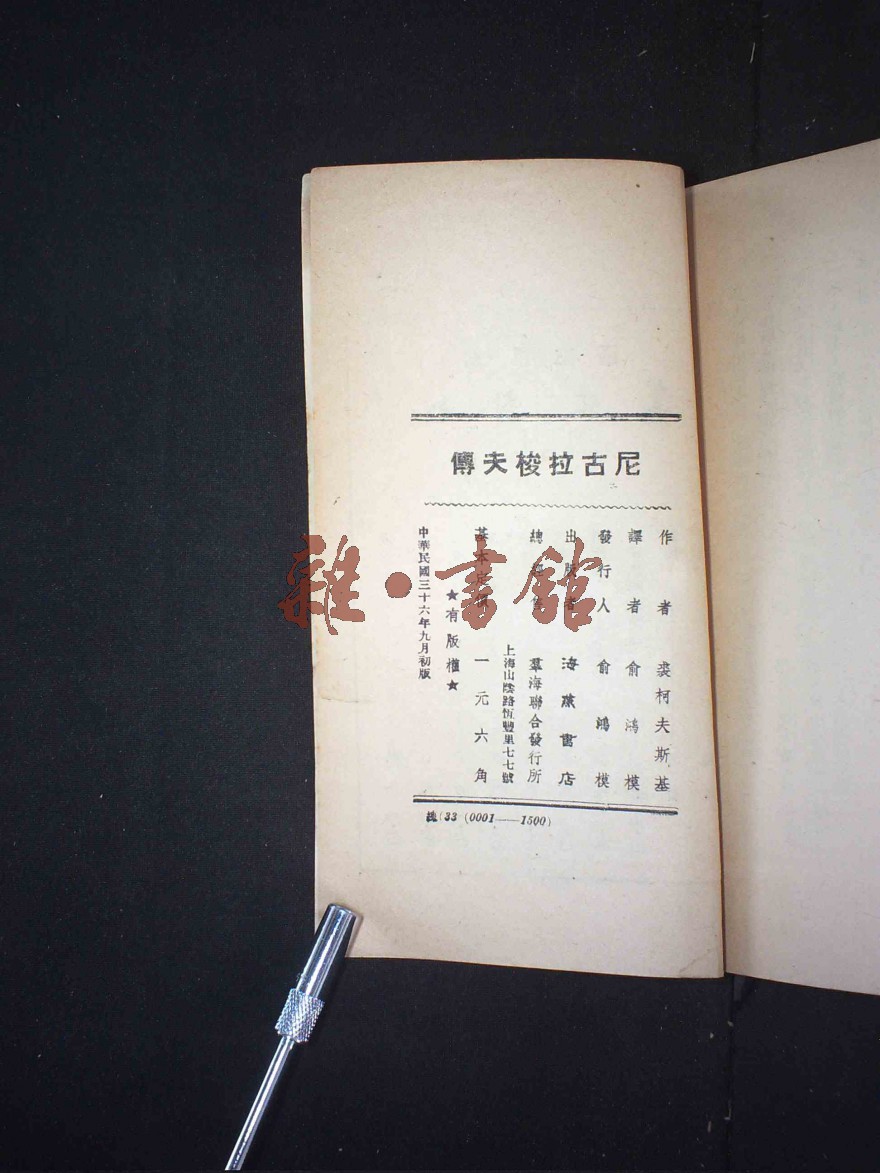 尼古拉梭夫傳
作者 裘柯夫斯基
譯者 俞鴻模
發行人 俞鴻模
出版者 海燕書店
總經售 羣海聯合發行所
上海山陰路恆豐里七七號
基本定價 一元六角
★有版權★
中華民國三十六年九月初版
(33 (0001——1500)
雜·書館